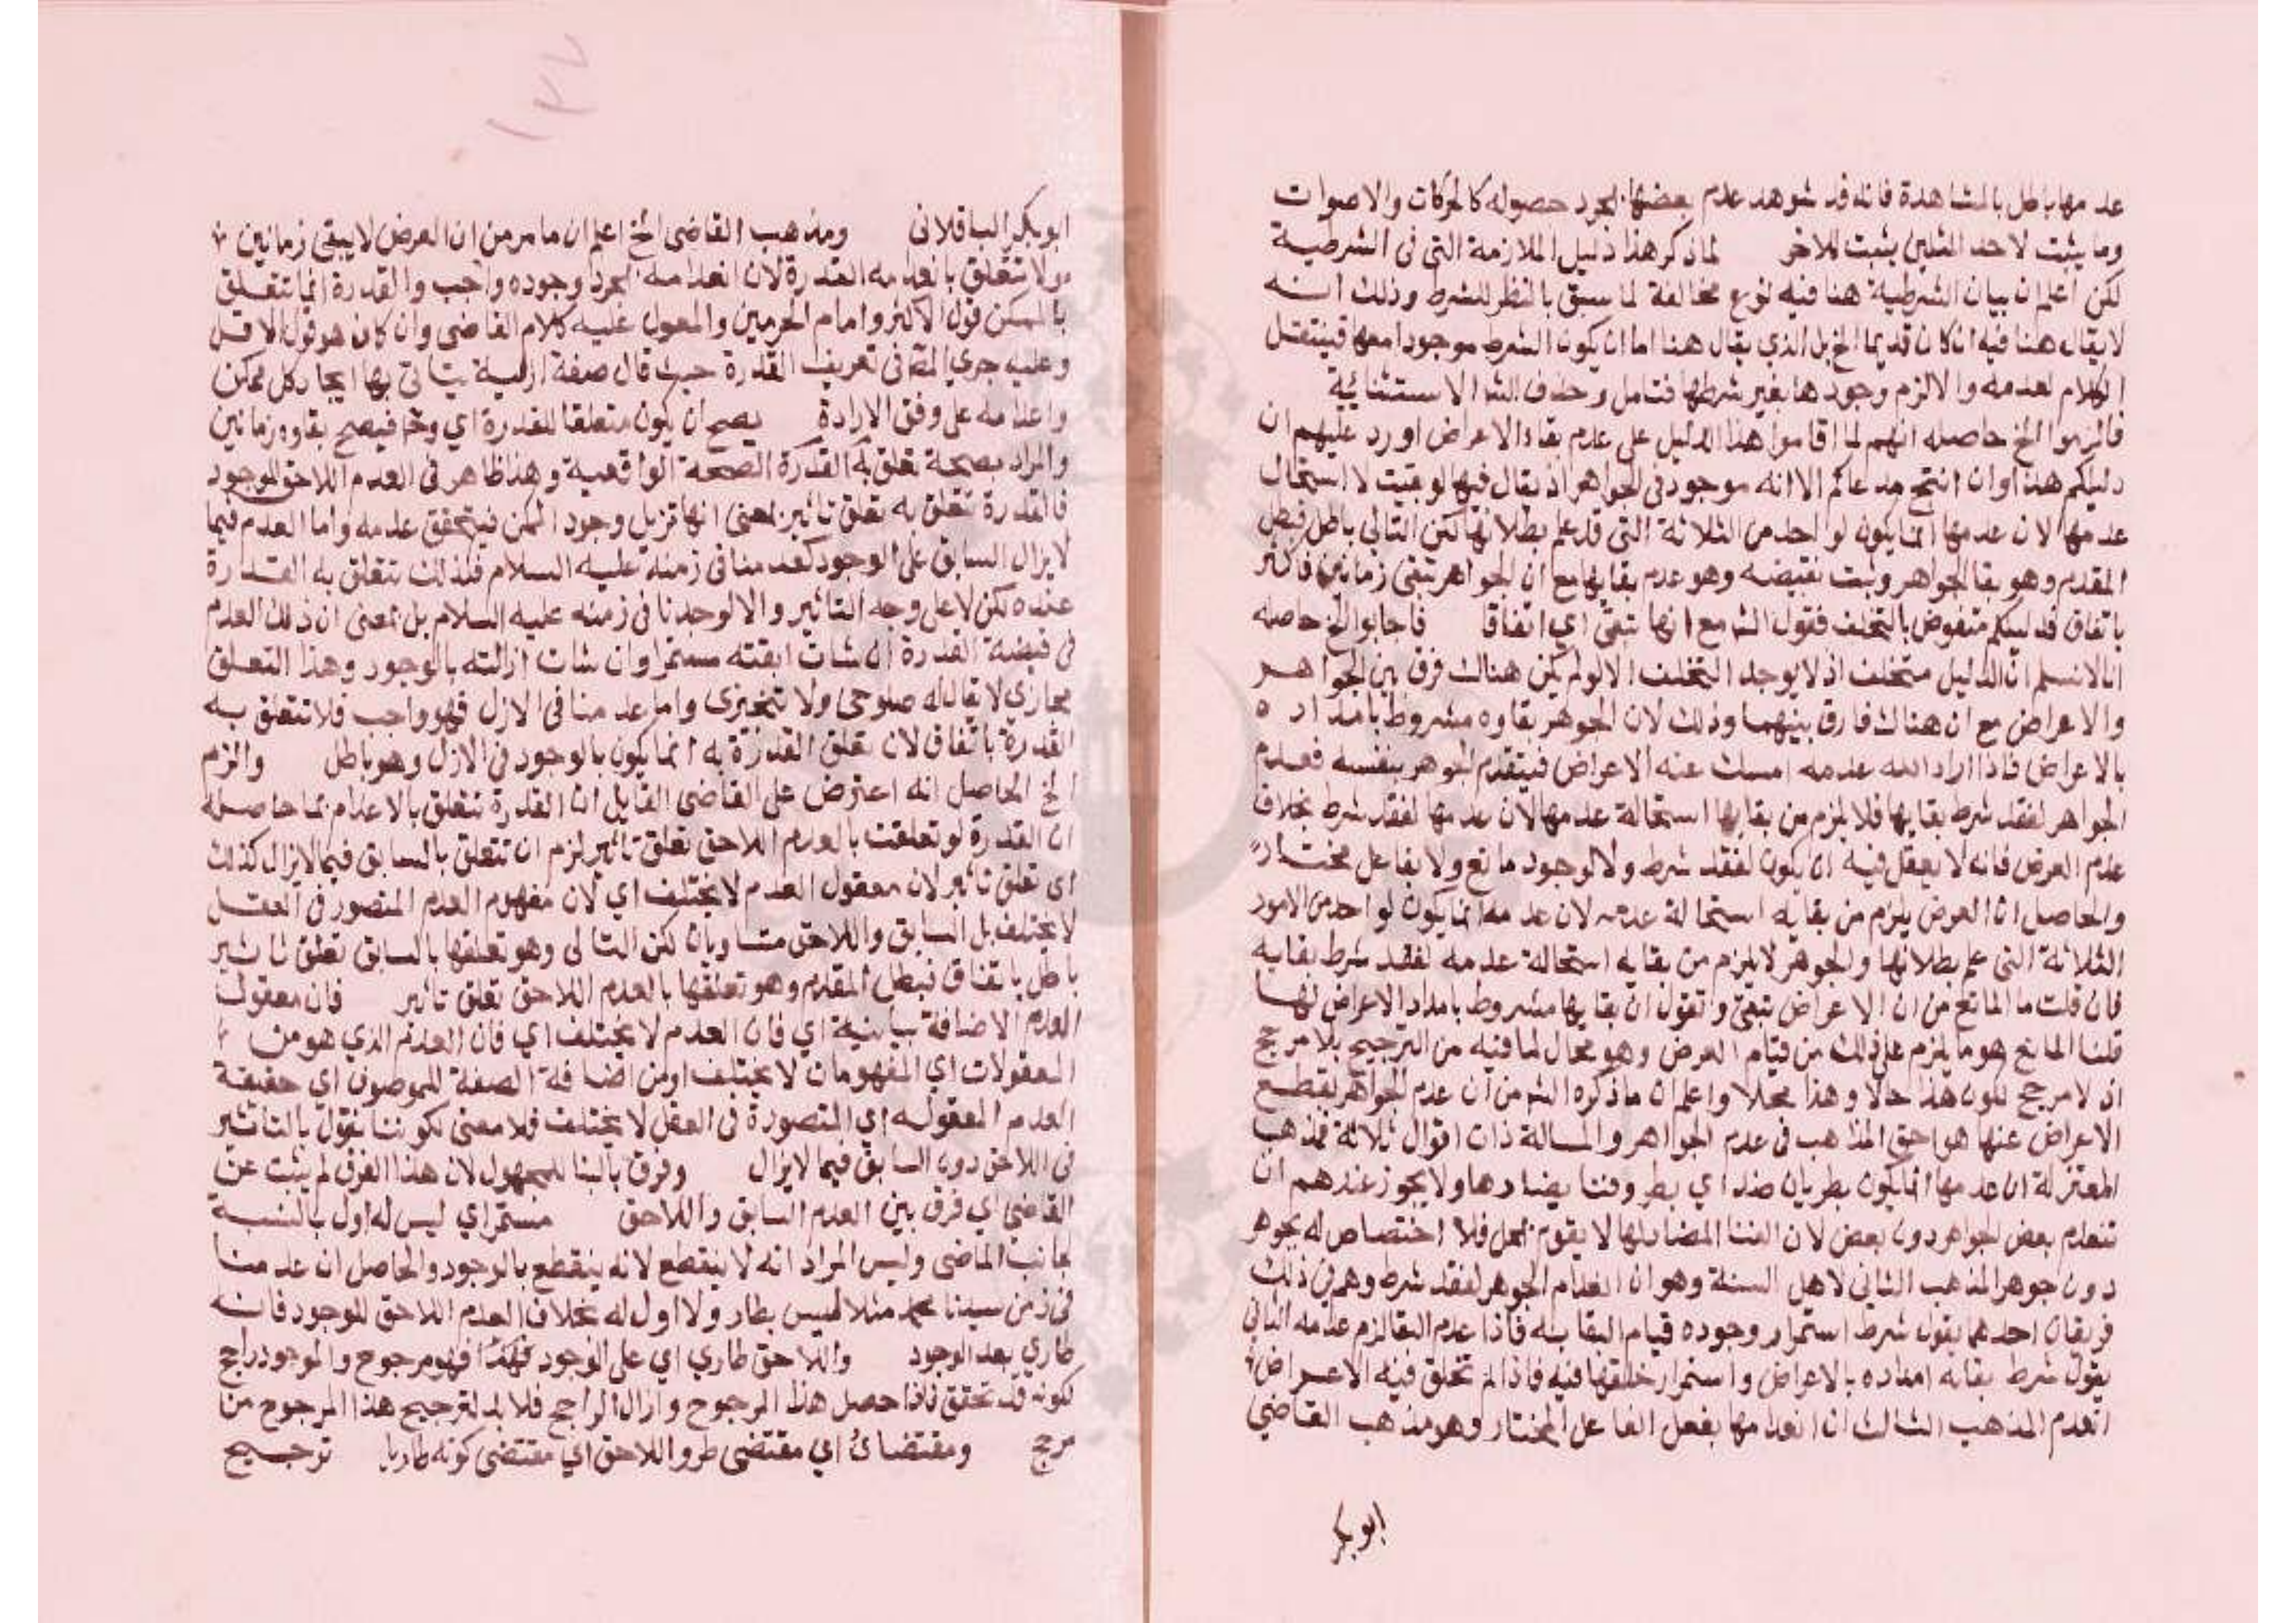 عدمها باطل بالمشاهدة فانه قد شوهد عدم بعضها بمجرد حصوله كالحركات والاصوات
وما يثبت لاحد المثلين يثبت للاخر لما ذكر هذا دليل الملازمة التى فى الشرطية
لكن اعلم ان بيان الشرطية هنا فيه نوع مخالفة لما سبق بالنظر للشرط وذلك انه
لا يقال هنا فيه ان كان قديما الخ بل الذي يقال هنا اما ان يكون الشرط موجودا معها فينتقل
الكلام لعدمه والا لزم وجودها بغير شرطها فتامل وحذف الش الاستثنائية
فالزموا الخ حاصله انهم لما اقاموا هذا الدليل على عدم بقاء الاعراض اورد عليهم ان
دليلكم هذا وان انتج مدعاكم الا انه موجود فى الجواهر اذ يقال فيها لو بقيت لاستحال
عدمها لان عدمها انما يكون لواحد من الثلاثة التى قد علم بطلانها لكن التالى باطل فبطل
المقدم وهو بقا الجواهر وثبت نقيضه وهو عدم بقايها مع ان الجواهر تبقى زمانين فاكثر
باتفاق فدليلكم منقوض بالتخلف فقول الش مع انها تبقى اي اتفاقا فاجابوا الخ حاصله
انا لا نسلم ان الدليل متخلف اذ لا يوجد التخلف الا لو لم يكن هناك فرق بين الجواهر
والاعراض مع ان هناك فارق بينهما وذلك لان الجوهر بقاوه مشروط بامداده
بالاعراض فاذا اراد الله عدمه امسك عنه الاعراض فينعدم الجوهر بنفسه فعدم
الجواهر لفقد شرط بقايها فلا يلزم من بقايها استحالة عدمها لان عدمها لفقد شرط بخلاف
عدم العرض فانه لا يعقل فيه ان يكون لفقد شرط ولا لوجود مانع ولا بفاعل مختار
والحاصل ان العرض يلزم من بقايه استحالة عدمه لان عدمه انما يكون لواحد من الامور
الثلاثة التى علم بطلانها والجوهر لا يلزم من بقايه استحالة عدمه لفقد شرط بقايه
فان قلت ما المانع من ان الاعراض تبقى وتقول ان بقايها مشروط بامداد الاعراض لها
قلنا المانع هو ما يلزم على ذلك من قيام العرض وهو محال لما فيه من الترجيح بلا مرجح
اذ لا مرجح لكون هذا حالا وهذا محلا واعلم ان ما ذكره الش من ان عدم الجواهر لقطع
الاعراض عنها هو احق المذاهب فى عدم الجواهر والمسالة ذات اقوال ثلاثة فمذهب
المعتزلة ان عدمها انما يكون بطريان ضد اي بطرو فنا يضادها ولا يجوز عندهم ان
تنعدم بعض الجواهر دون بعض لان الفنا المضاد لها لا يقوم بمحل فلا اختصاص له بجوهر
دون جوهر المذهب الثاني لاهل السنة وهو ان انعدام الجوهر لفقد شرط وهم فى ذلك
فريقان احدهما يقول شرط استمرار وجوده قيام البقا به فاذا عدم البقا لزم عدمه الثاني
يقول شرط بقائه امداده بالاعراض واستمرار خلقها فيه فاذا لم تخلق فيه الاعراض
انعدم المذهب الثالث ان انعدامها بفعل الفاعل المختار وهو مذهب القاضي
ابو بكر
١٢٧
ابو بكر الباقلانى ومذهب القاضى الخ اعلم ان ما مر من ان العرض لا يبقى زمانين
ولا تتعلق بانعدامه القدرة لان انعدامه بمجرد وجوده واجب والقدرة انما تتعلق
بالممكن قول الاكثر وامام الحرمين والمعول عليه كلام القاضى وان كان هو قول الاقل
وعليه جرى المص فى تعريف القدرة حيث قال صفة ازلية يتاتى بها ايجاد كل ممكن
واعدامه على وفق الارادة يصح ان يكون متعلقا للقدرة اي وح فيصح بقاوه زمانين
والمراد بصحة تعلق القدرة الصحة الواقعية وهذا ظاهر فى العدم اللاحق للوجود
فالقدرة تتعلق به تعلق تاثير بمعنى انها تزيل وجود الممكن فيتحقق عدمه واما العدم فيما
لا يزال السابق على الوجود كعدمنا فى زمنه عليه السلام فلذلك تتعلق به القدرة
عنده لكن لا على وجه التاثير والا لوجدنا فى زمنه عليه السلام بل بمعنى ان ذلك العدم
فى قبضة القدرة ان شات ابقته مستمرا وان شات ازالته بالوجود وهذا التعلق
مجازي لا يقال له صلوحى ولا تنجيزى واما عدمنا فى الازل فهو واجب فلا تتعلق به
القدرة باتفاق لان تعلق القدرة به انما يكون بالوجود فى الازل وهو باطل والزم
الخ الحاصل انه اعترض على القاضى القايل ان القدرة تتعلق بالاعدام بما حاصله
ان القدرة لو تعلقت بالعدم اللاحق تعلق تاثير لزم ان تتعلق بالسابق فيما لا يزال كذلك
اى تعلق تاثير لان معقول العدم لا يختلف اي لان مفهوم العدم المتصور فى العقل
لا يختلف بل السابق واللاحق متساويان لكن التالى وهو تعلقها بالسابق تعلق تاثير
باطل باتفاق فبطل المقدم وهو تعلقها بالعدم اللاحق تعلق تاثير فان معقول
العدم الاضافة بيانية اي فان العدم لا يختلف اي فان العدم الذي هو من
المعقولات اي المفهومات لا يختلف او من اضافة الصفة للموصوف اي حقيقة
العدم المعقوله اي المتصورة فى العقل لا يختلف فلا معنى لكوننا نقول بالتاثير
فى اللاحق دون السابق فيما لا يزال وفرق بالبنا للمجهول لان هذا الفرق لم يثبت عن
القاضي اي فرق بين العدم السابق واللاحق مستمر اي ليس له اول بالنسبة
لجانب الماضى وليس المراد انه لا ينقطع لانه ينقطع بالوجود والحاصل ان عدمنا
فى زمن سيدنا محمد مثلا ليس بطار ولا اول له بخلاف العدم اللاحق للوجود فانه
طاري بعد الوجود واللاحق طاري اي على الوجود فهو مرجوح والموجود راجح
لكونه قد تحقق فاذا حصل هذا المرجوح وازال الراجح فلا بد لترجيح هذا المرجوح من
مرجح ومقتضاه اي مقتضى طرو اللاحق اي مقتضى كونه طاريا ترجيح